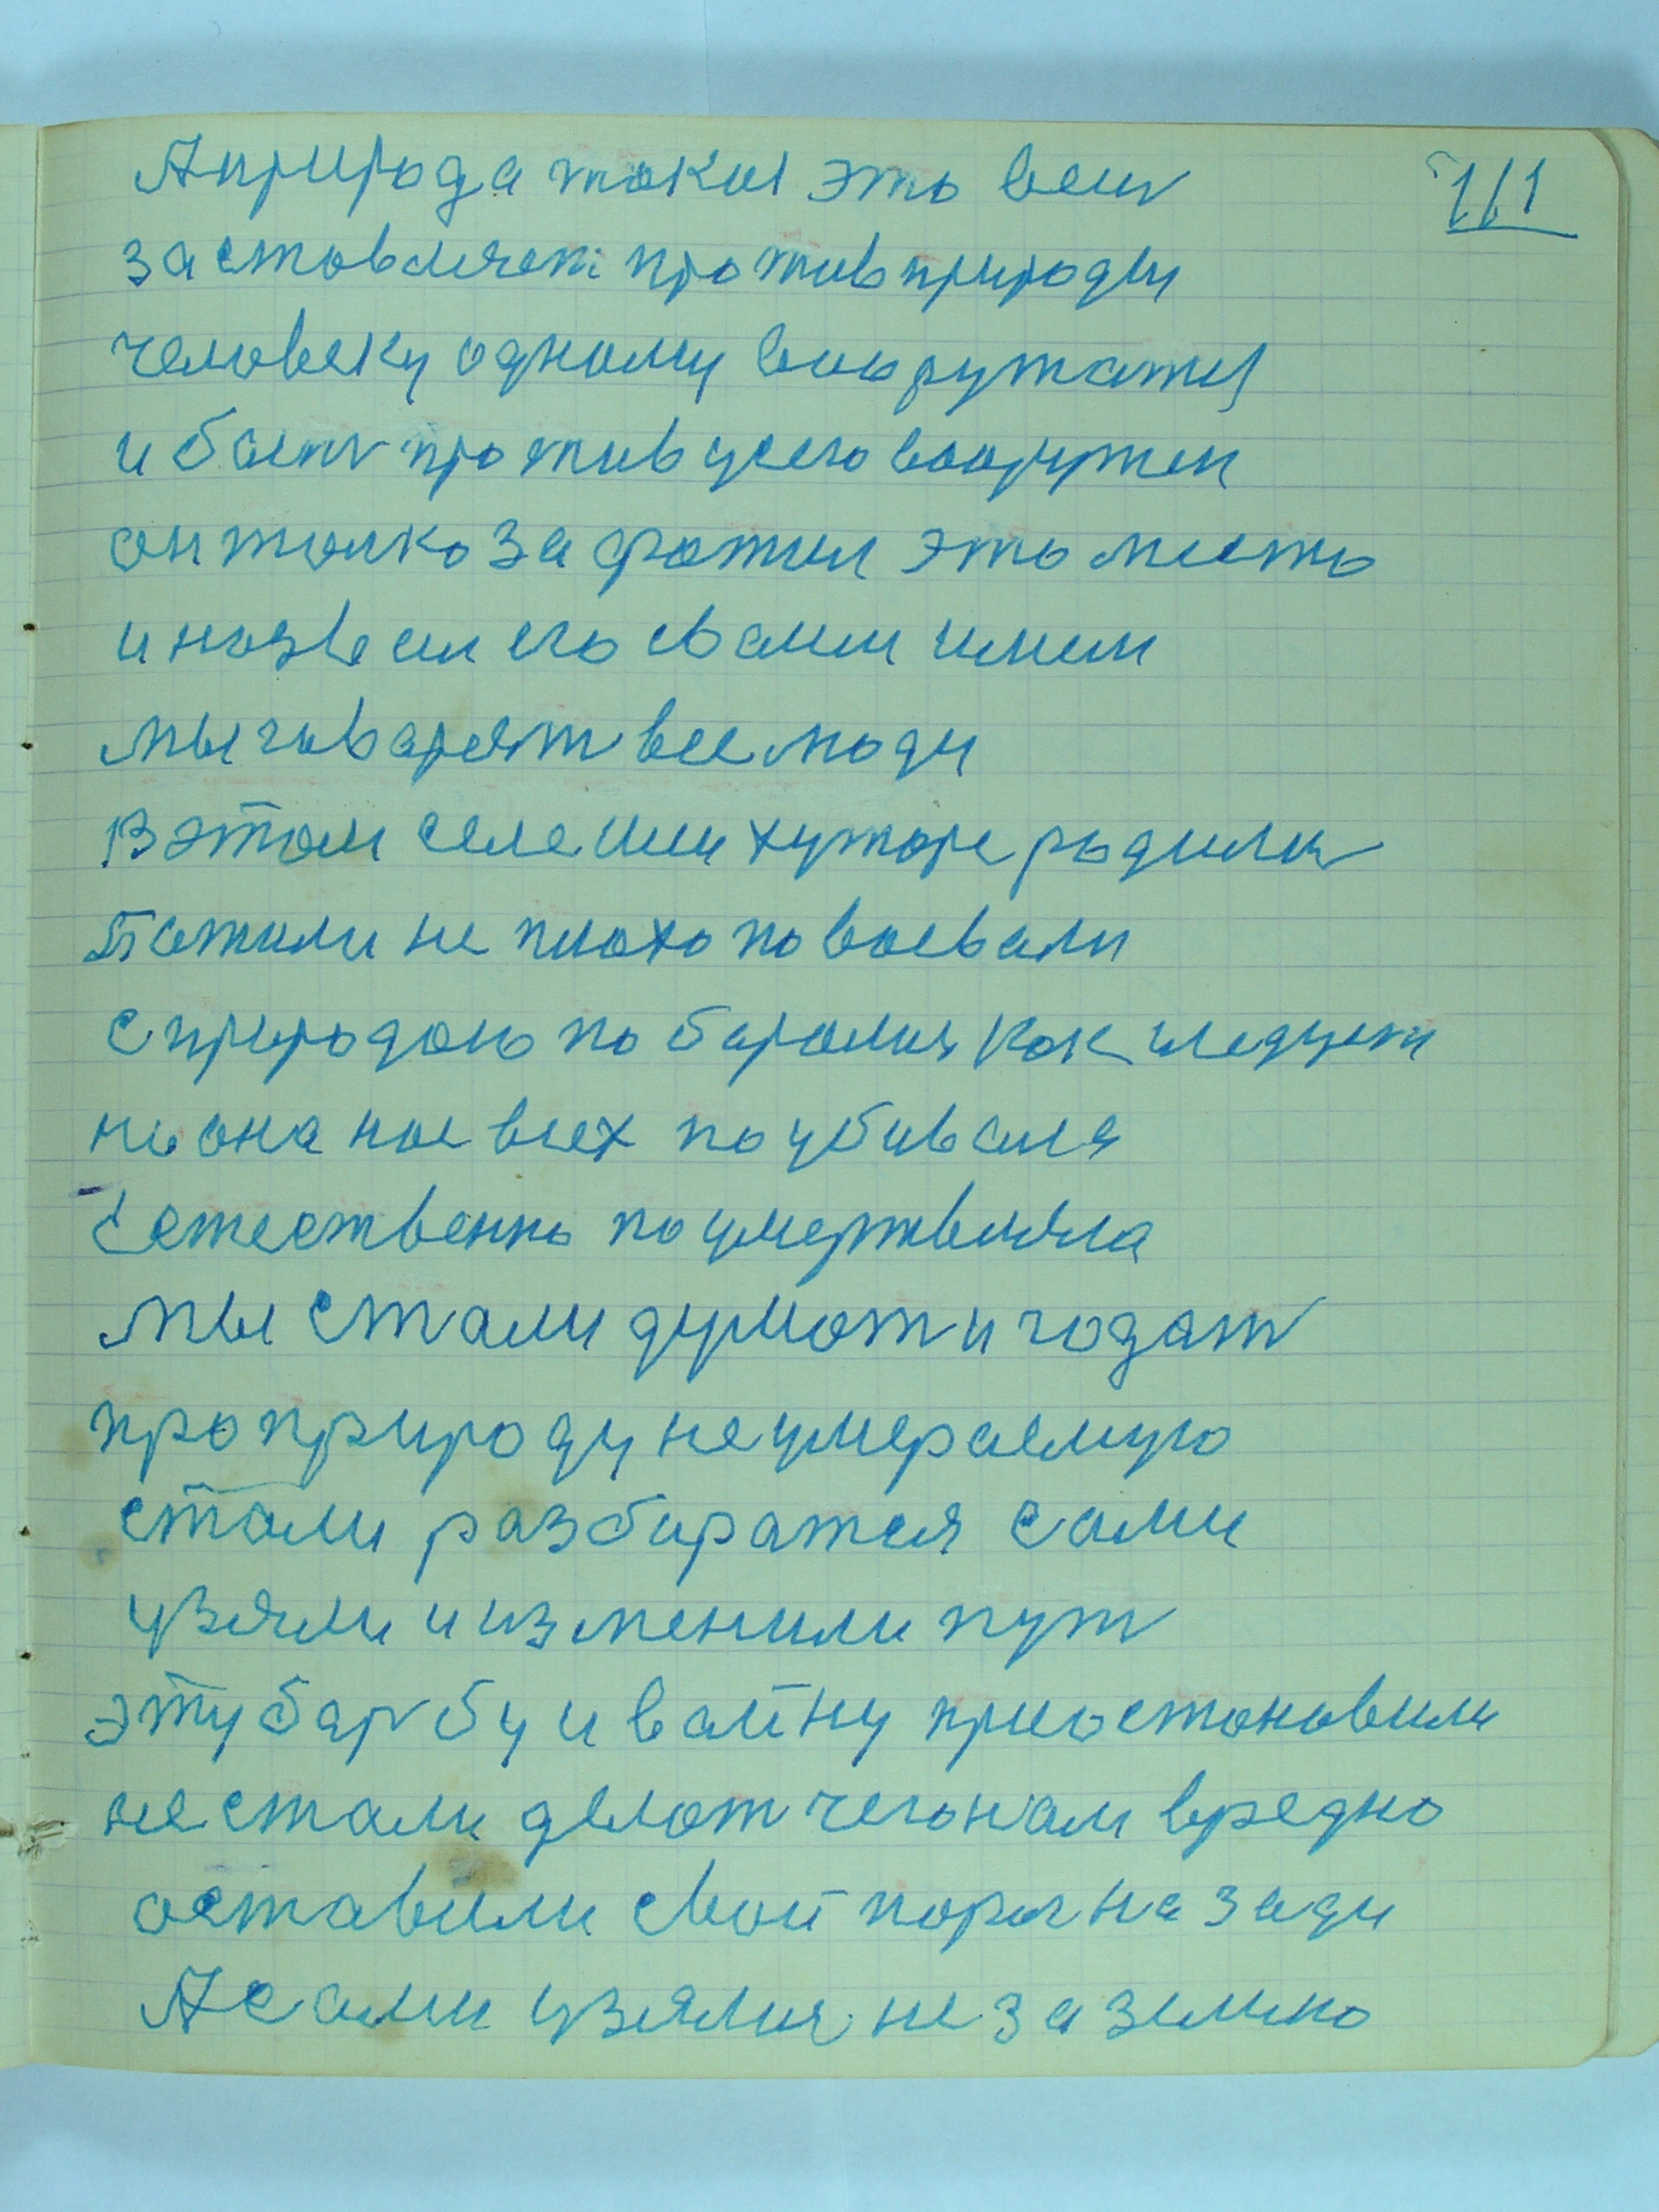 А природа такая это весть 111
заставляет против природы
человеку одному вооружатся
и быть против усего вооружен
он толко захватил это место
и назвал его своим имем
мы говарят все люди
В этом селе или хуторе родилис
Пожили не плохо повоевали
с природою побаролис как следует
но она нас всех поубивала
Естественно поумертвляла
мы стали думат и гадат
про природу не умераемую
стали разбиратся сами
узяли и изменили пут
эту барбу и вайну приостоновили
не стали делат чего нам вредно
оставили свой поря на зади
А сами узялис не за землю